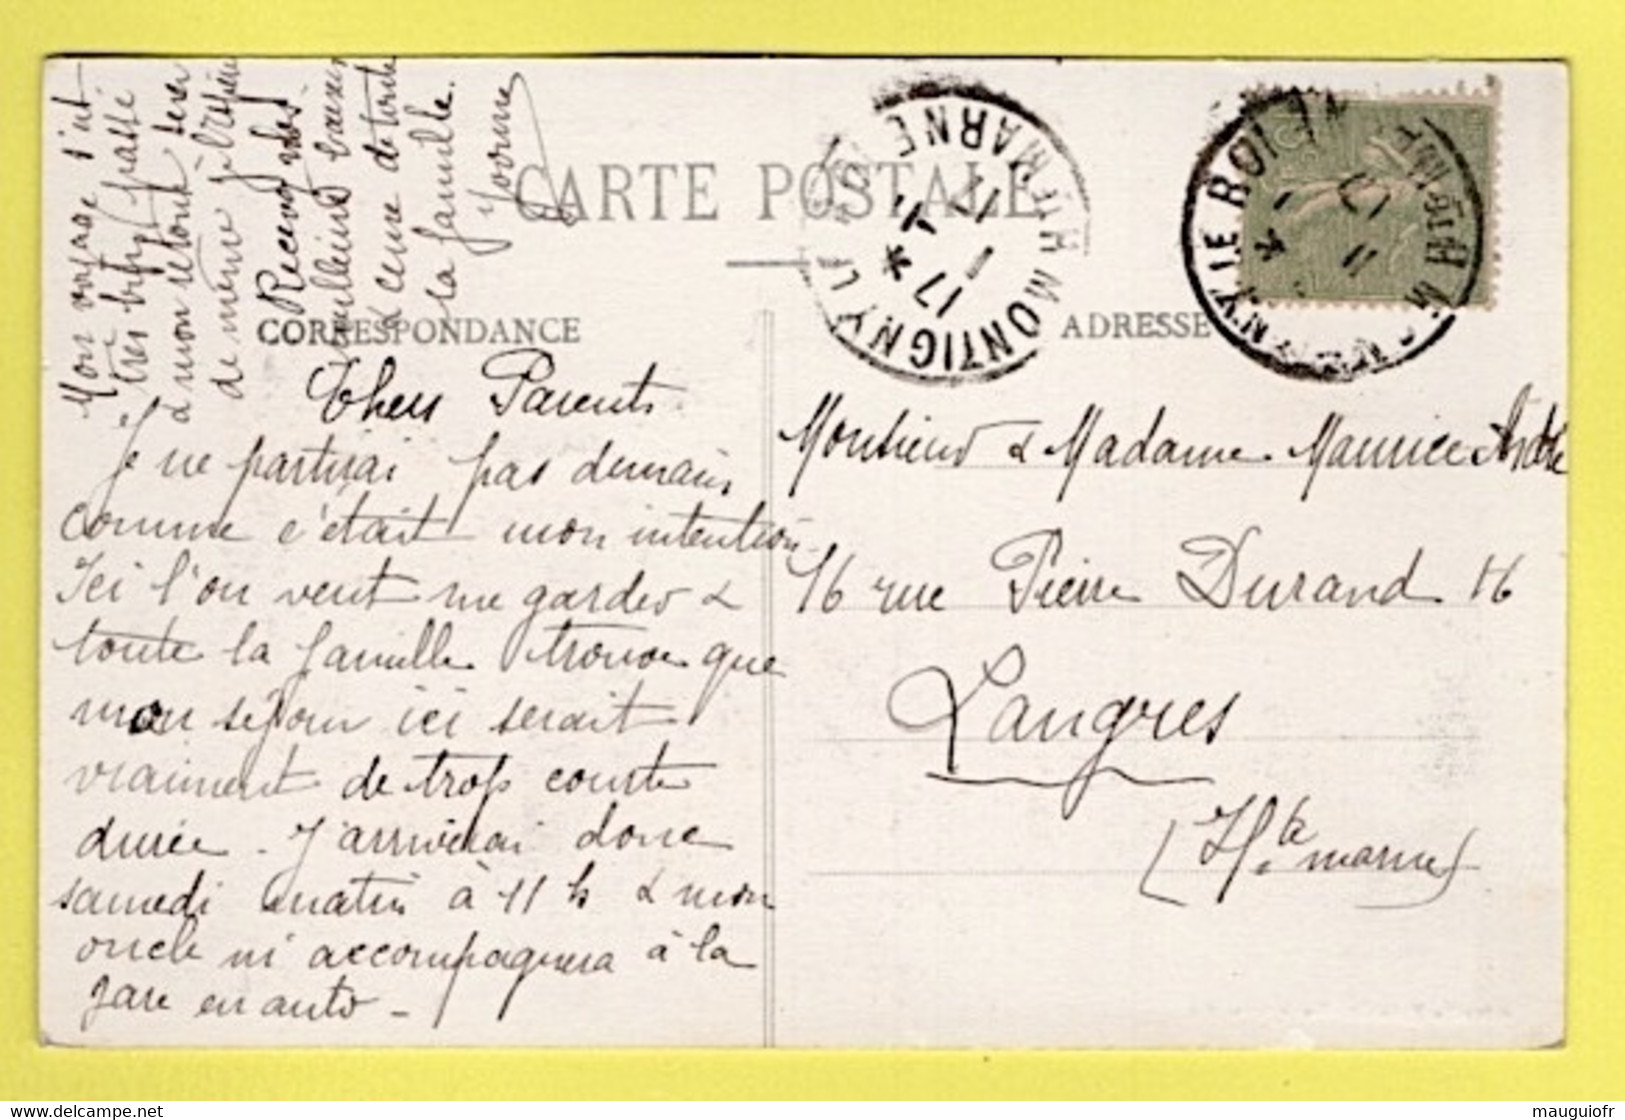 CARTE POSTALE
CORRESPONDANCE
ADRESSE
Chers Parents
Je ne partirai pas demain
comme c'était mon intention
Ici l'on veut me garder &
toute la famille trouve que
mon séjour ici serait
vraiment de trop courte
durée. J'arriverai donc
samedi matin à 11 h & mon
oncle m'accompagnera à la
gare en auto -
Mon voyage s'est
très bien passé
& mon retour sera
de même je l'espère
Recevez chers
meilleurs baisers
& ceux de toute
la famille.
Yvonne
Monsieur & Madame Maurice André
16 rue Pierre Durand 16
Langres
(Hte marne)
MONTIGNY LE ROI
HTE MARNE
17 * 1
11
MONTIGNY LE ROI
HTE MARNE
mauguiofr